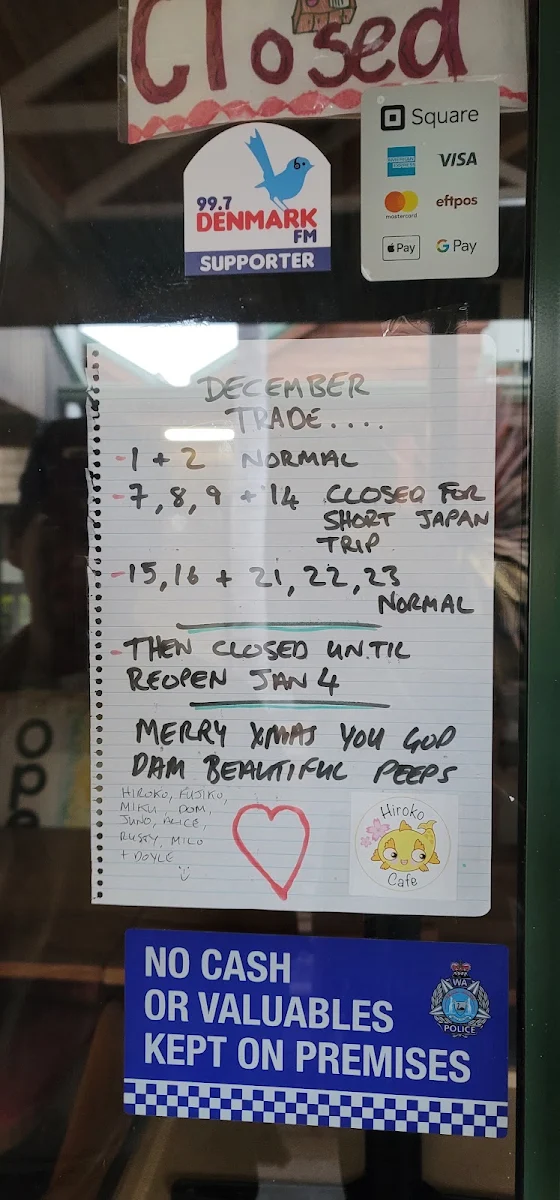 Closed
Square
AMERICAN EXPRESS
VISA
mastercard
eftpos
Pay
G Pay
99.7
DENMARK
FM
SUPPORTER
DECEMBER
TRADE....
-1 + 2 NORMAL
-7, 8, 9 + 14 CLOSED FOR
SHORT JAPAN
TRIP
-15, 16 + 21, 22, 23
NORMAL
-THEN CLOSED UNTIL
REOPEN JAN 4
MERRY XMAS YOU GOD
DAM BEAUTIFUL PEEPS
HIROKO, FUJIKO,
MIKU, DOM,
JUNO, ALICE,
RUSTY, MILO
+ DOYLE
Hiroko
Cafe
Ope
NO CASH
OR VALUABLES
KEPT ON PREMISES
WA
POLICE